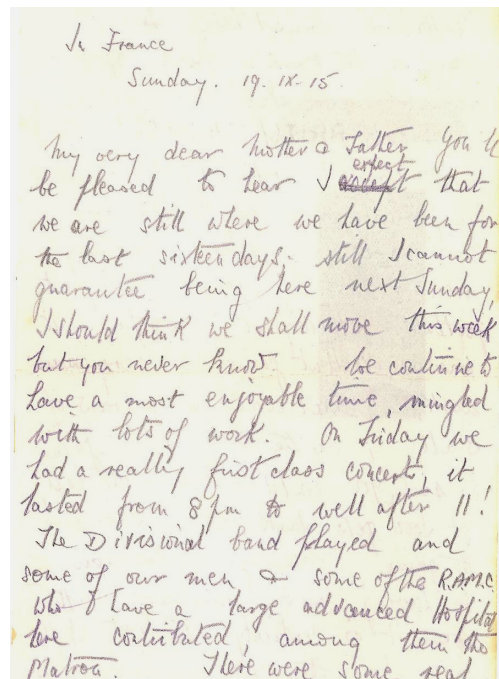 In France
Sunday. 19. IX-15.
My very dear Mother & Father You'll
be pleased to hear I expect that
we are still where we have been for
the last sixteen days. still I cannot
guarantee being here next Sunday,
I should think we shall move this week
but you never know. We continue to
have a most enjoyable time, mingled
with lots of work. On Friday we
had a really first class concert, it
lasted from 8 pm to well after 11!
The Divisional band played and
some of our men & some of the R.A.M.C.
who have a large advanced Hospital
here contributed, among them the
Matron. There were some real